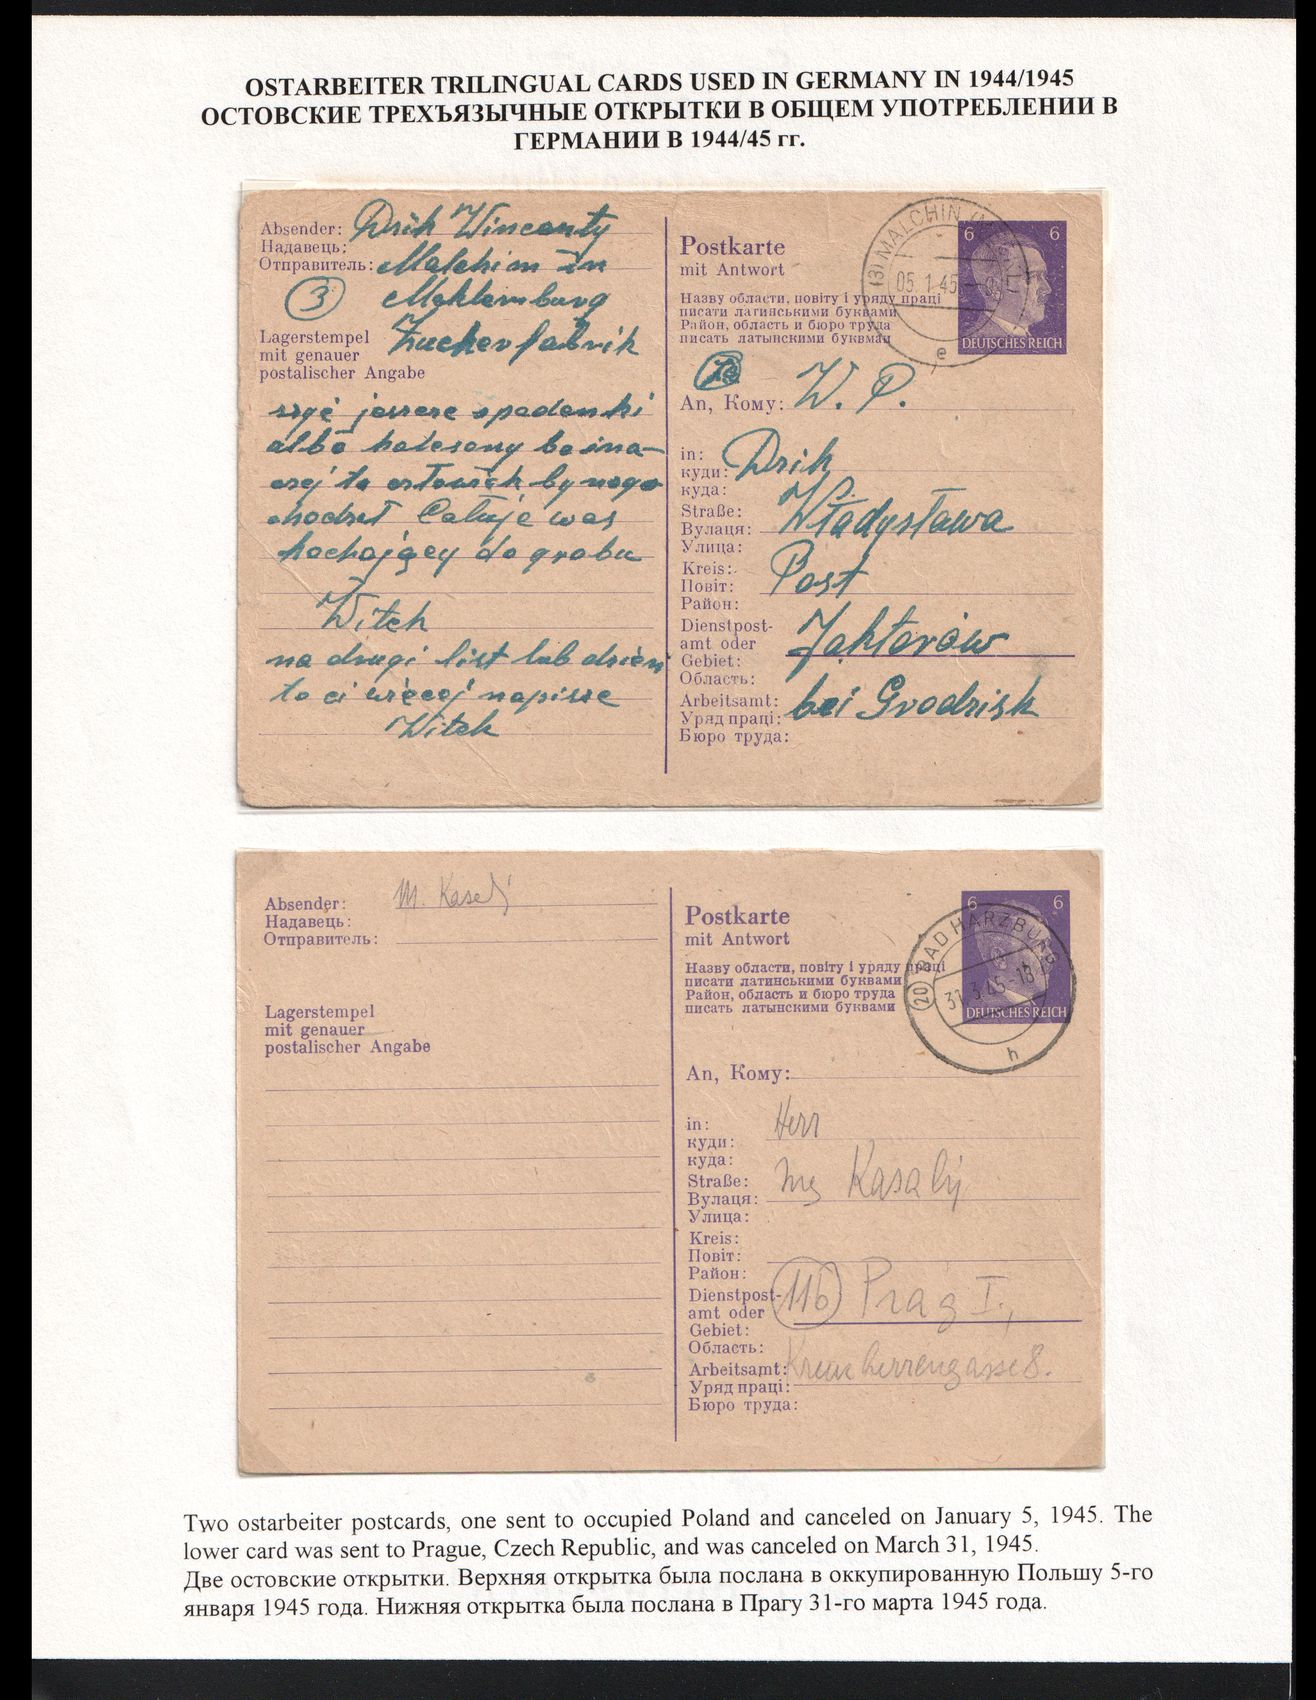 OSTARBEITER TRILINGUAL CARDS USED IN GERMANY IN 1944/1945
ОСТОВСКИЕ ТРЕХЪЯЗЫЧНЫЕ ОТКРЫТКИ В ОБЩЕМ УПОТРЕБЛЕНИИ В
ГЕРМАНИИ В 1944/45 гг.
Absender: Drih Wincenty
Надавець:
Отправитель: Malchim in
3 Meklemburg
Lagerstempel Zuckerfabrik
mit genauer
postalischer Angabe
jeszcze spodenki
albo kalesony bo ina-
czej to człowiek by nago
chodził Całuje was
kochający do grobu
Witek
na drugi list lub dzień
to ci więcej napisze
Witek
Postkarte
mit Antwort
Назву области, повіту і уряду праці
писати латинськими буквами
Район, область и бюро труда
писать латынскими буквмаи
(3) MALCHIN
05.1.45
e
6 6
DEUTSCHES REICH
An, Кому: W. P.
in: Drih
куди:
куда:
Straße: Władysława
Вулаця:
Улица:
Kreis: Post
Повіт:
Район:
Dienstpost-
amt oder Jaktorów
Gebiet:
Область:
Arbeitsamt: bei Grodzisk
Уряд праці:
Бюро труда:
Absender: M.
Надавець:
Отправитель:
Lagerstempel
mit genauer
postalischer Angabe
Postkarte
mit Antwort
Назву области, повіту і уряду праці
писати латинськими буквами
Район, область и бюро труда
писать латынскими буквами
(20) BAD HARZBURG
31.3.45-18
h
6 6
DEUTSCHES REICH
An, Кому:
in: Herr
куди:
куда:
Straße: Ing Kasalý
Вулаця:
Улица:
Kreis:
Повіт:
Район:
Dienstpost- 11b Prag I.,
amt oder
Gebiet:
Область:
Arbeitsamt: Kreuzherrengasse 8.
Уряд праці:
Бюро труда:
Two ostarbeiter postcards, one sent to occupied Poland and canceled on January 5, 1945. The
lower card was sent to Prague, Czech Republic, and was canceled on March 31, 1945.
Две остовские открытки. Верхняя открытка была послана в оккупированную Польшу 5-го
января 1945 года. Нижняя открытка была послана в Прагу 31-го марта 1945 года.